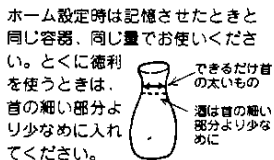 ホーム設定時は記憶させたときと
同じ容器、同じ量でお使いくださ
い。とくに徳利
を使うときは、
首の細い部分よ
り少なめに入れ
てください。
できるだけ首
の太いもの
酒は首の細い
部分より少な
めに